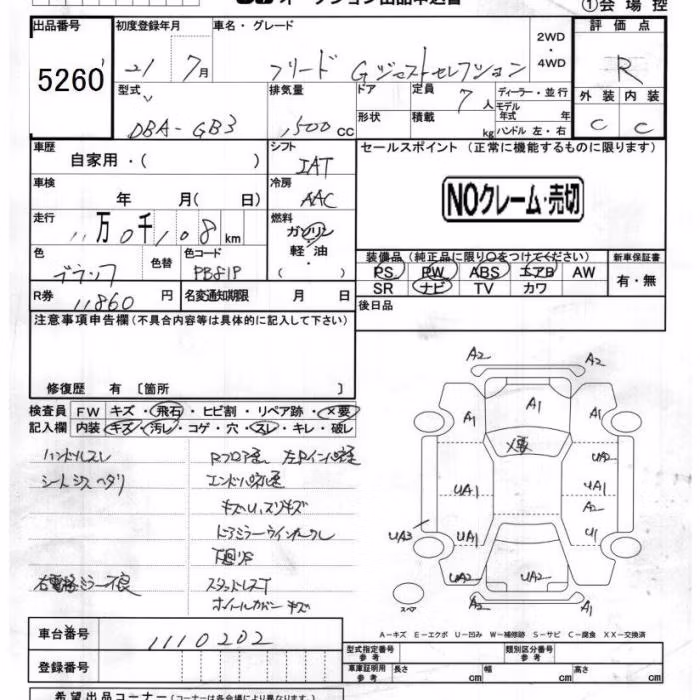 ①会場控
出品番号
5260
初度登録年月
21 7月
車名・グレード
フリード Gジャストセレクション
2WD
・
4WD
評価点
R
型式
DBA-GB3
排気量
1500 cc
ドア
形状
定員
7人
積載
kg
ディーラー・並行
モデル
年式 年
ハンドル 左・右
外装 内装
C C
車歴
自家用・( )
シフト
IAT
セールスポイント (正常に機能するものに限ります)
NOクレーム・売切
車検
年 月( 日)
冷房
AAC
走行
11万0千108km
燃料
ガソリン
・
軽油
( )
色
ブラック
色替
色コード
PB81P
装備品(純正品に限り〇をつけてください)
PS PW ABS エアB AW
SR ナビ TV カワ
新車保証書
有・無
R券
11,860円
名変通知期限 月 日
後日品
注意事項申告欄(不具合内容等は具体的に記入して下さい)
修復歴 有 〔箇所 〕
検査員
記入欄
FW キズ・飛石・ヒビ割・リペア跡・×要
内装 キズ・汚レ・コゲ・穴・スレ・キレ・破レ
ハンドルスレ
シートシミヘタリ
右電格ミラー不良
エンドパネル歪
ドアミラーウインカークレ
下廻りサビ
スタッドレスT
ホイールカバーキズ
A2 A2
A1
A1 A1
×要
UA2
UA1 UA1 A2
UA3 UA1 U1
UA2 UA2
A2
スペア
A-キズ E-エクボ U-凹み W-補修跡 S-サビ C-腐食 XX-交換済
車台番号
1110202
登録番号
型式指定番号
参考
類別区分番号
参考
車庫証明用
参考
長さ cm 幅 cm 高さ cm
希望出品コーナー